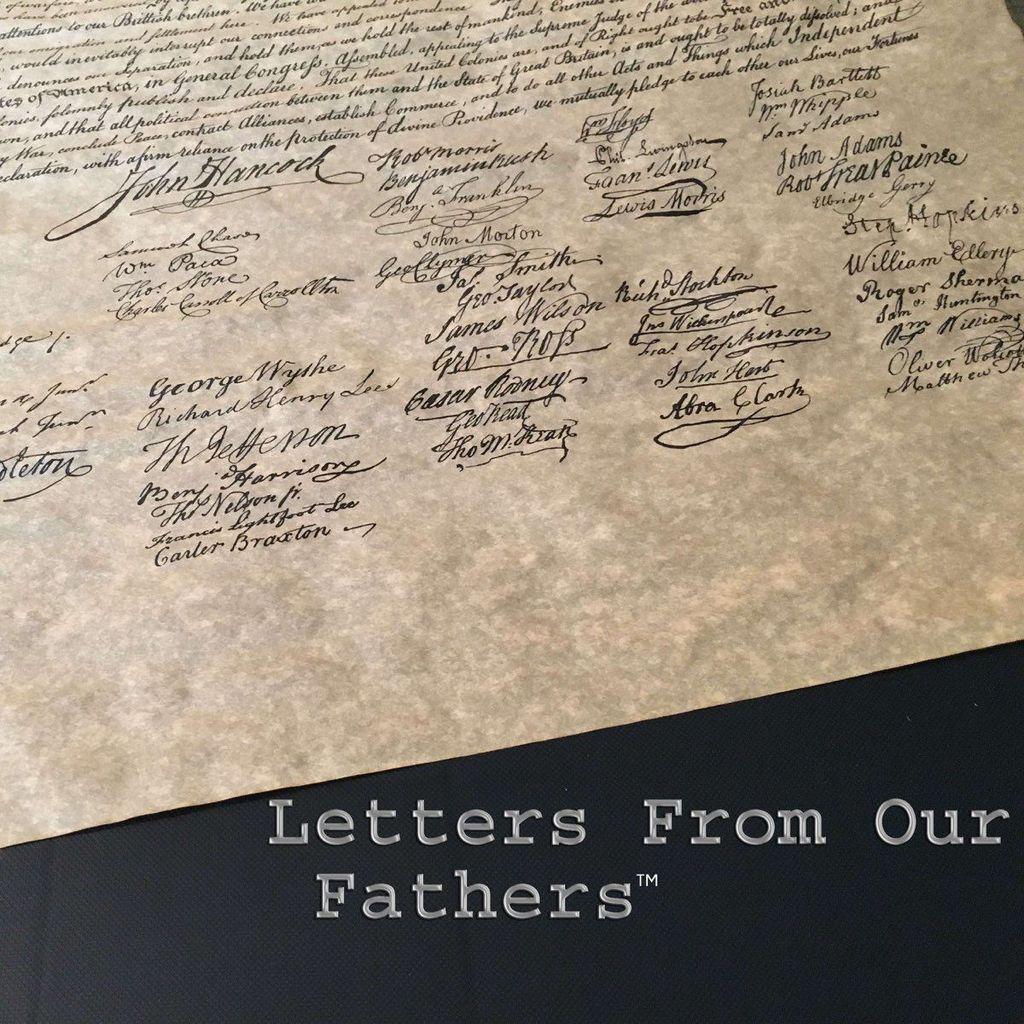 attentions to our Brittish brethren. We have we
emigration and settlement here. We have appealed
would inevitably interrupt our connections and correspondence.
denounces our Separation, and hold them, as we hold the rest of mankind, Enemies in
tes of America, in General Congress, Assembled, appealing to the Supreme Judge of the
onies, solemnly publish and declare, That these United Colonies are, and of Right ought to be Free and
on, and that all political connection between them and the State of Great Britain, is and ought to be totally dissolved; and
y War, conclude Peace, contract Alliances, establish Commerce, and to do all other Acts and Things which Independent
eclaration, with a firm reliance on the protection of divine Providence, we mutually pledge to each other our Lives, our Fortunes
John Hancock
Samuel Chase
Wm Paca
Thos Stone
Charles Carroll of Carrollton
George Wythe
Richard Henry Lee
Th Jefferson
Benj Harrison
Thos Nelson jr.
Francis Lightfoot Lee
Carter Braxton
Robt Morris
Benjamin Rush
Benj. Franklin
John Morton
Geo Clymer
Jas. Smith
Geo Taylor
James Wilson
Geo. Ross
Caesar Rodney
Geo Read
Tho M. Kean
Phil. Livingston
Frans. Lewis
Lewis Morris
Richd Stockton
Jno Witherspoon
Fras Hopkinson
John Hart
Abra Clark
Josiah Bartlett
Wm Whipple
Saml Adams
John Adams
Robt Treat Paine
Elbridge Gerry
Step. Hopkins
William Ellery
Roger Sherma
Saml Huntington
Wm Williams
Oliver Wolcott
Matthew Th
Letters From Our
Fathers™